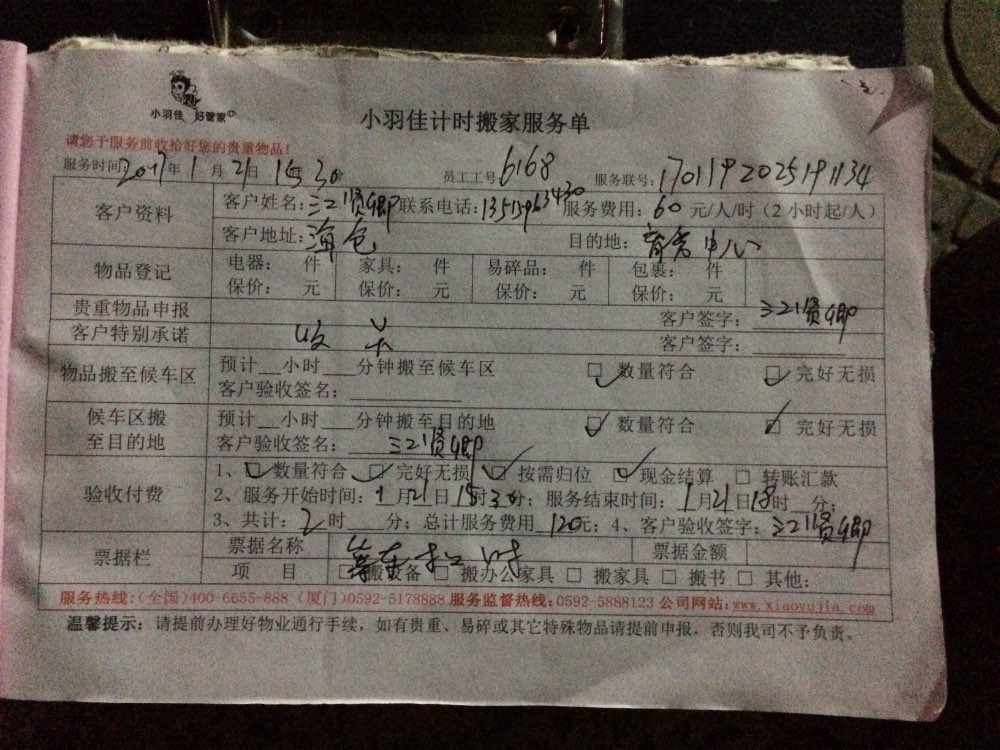 小羽佳 好管家
小羽佳计时搬家服务单
请您于服务前收拾好您的贵重物品！
服务时间：2017年1月21日15 30 员工工号：6168 服务联号：1701192025191134
客户资料 客户姓名：江贤卿 联系电话： 服务费用：60元/人/时（2小时起/人）
客户地址：海仓 目的地：商务中心
物品登记 电器： 件 家具： 件 易碎品： 件 包裹： 件
保价： 元 保价： 元 保价： 元 保价： 元
贵重物品申报 客户签字：江贤卿
客户特别承诺 客户签字：
物品搬至候车区 预计__小时___分钟搬至候车区 数量符合 完好无损
客户验收签名：
候车区搬至目的地 预计__小时___分钟搬至目的地 数量符合 完好无损
客户验收签名：江贤卿
验收付费 1、数量符合 完好无损 按需归位 现金结算 转账汇款
2、服务开始时间：1月21日15时30分；服务结束时间：1月21日18时__分；
3、共计：2时___分；总计服务费用120元；4、客户验收签字：江贤卿
票据栏 票据名称 票据金额
项 目 搬设备 搬办公家具 搬家具 搬书 其他：
服务热线：（全国）400-6655-888（厦门）0592-5178888 服务监督热线：0592-5888123 公司网站：www.xiaoyujia.com
温馨提示：请提前办理好物业通行手续，如有贵重、易碎或其它特殊物品请提前申报，否则我司不予负责。